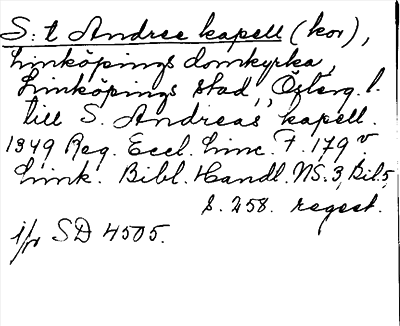 S:t Andree kapell (kor),
Linköpings domkyrka,
Linköpings stad, Österg. l.
till S. Andreas kapell.
1349 Reg. Eccl. Linc. F. 179 v.
Link. Bibl. Handl. NS. 3, Bil. 5,
s. 258. regest.
jfr SD 4505.